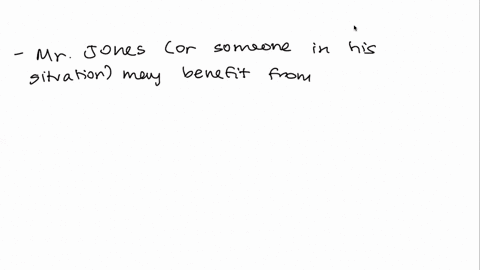 - Mr. Jones (or someone in his
situation) may benefit from